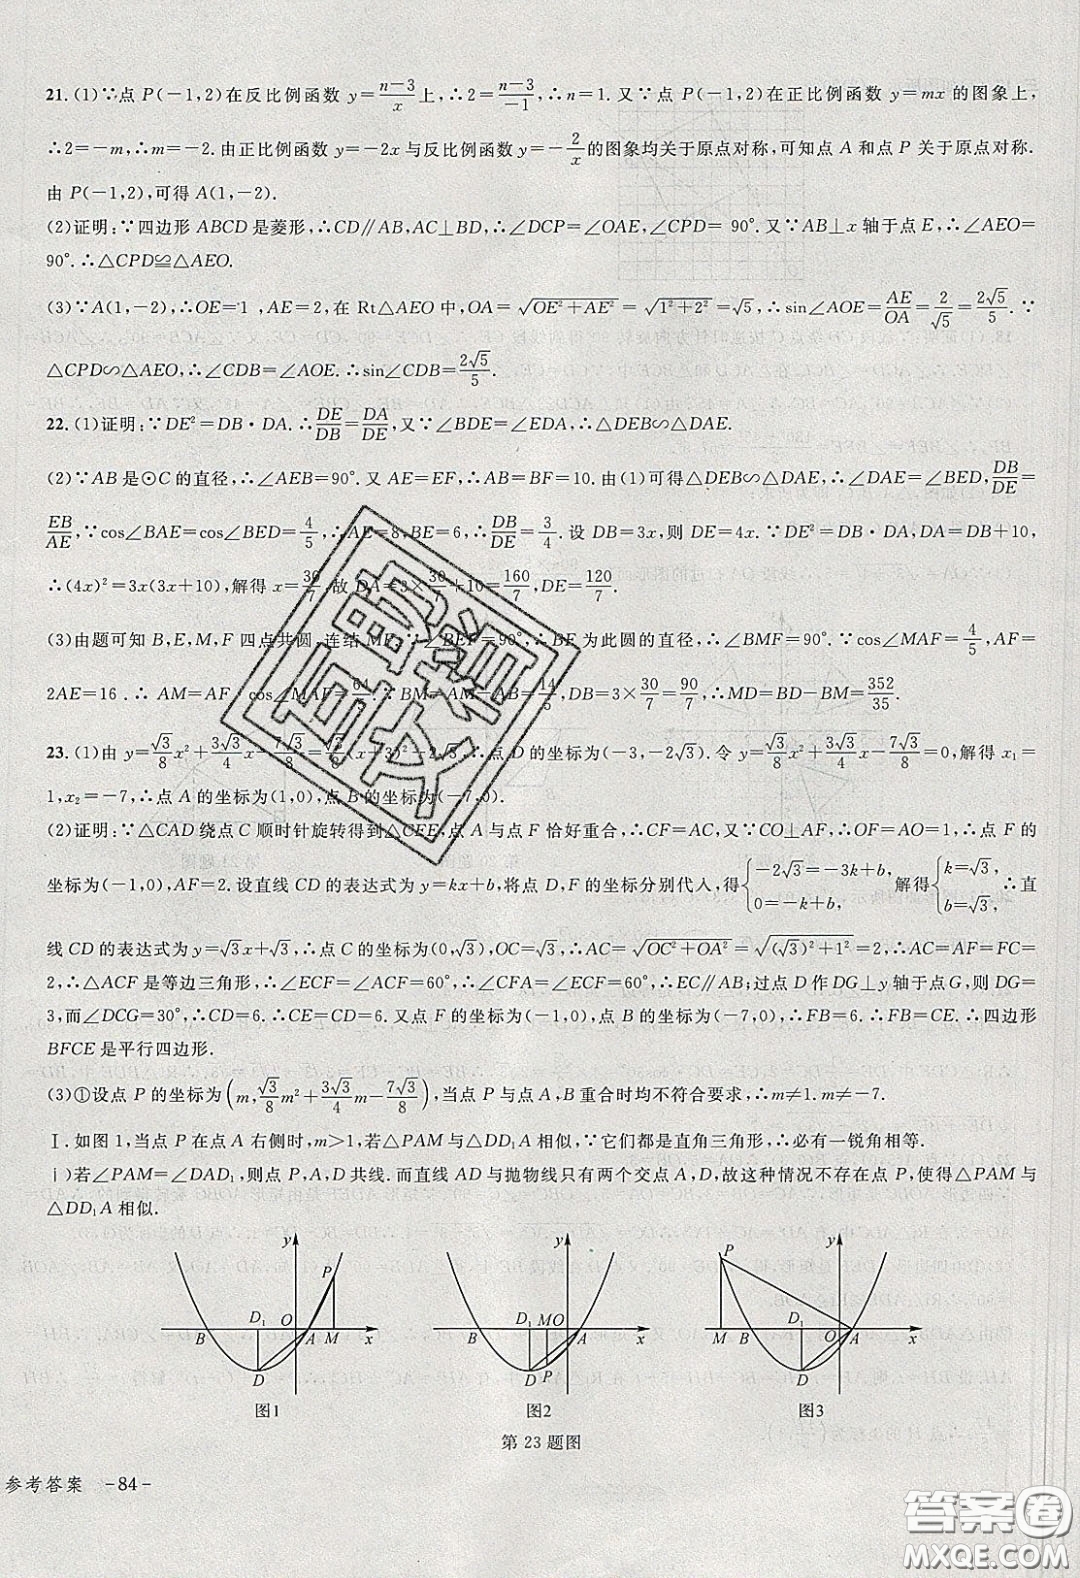 21.(1)∵点 P(-1,2)在反比例函数 y=\frac{n-3}{x}上,∴2=\frac{n-3}{-1},∴n=1. 又∵点 P(-1,2)在正比例函数 y=mx 的图象上,
∴2=-m,∴m=-2.由正比例函数 y=-2x与反比例函数 y=-\frac{2}{x}的图象均关于原点对称,可知点 A 和点 P 关于原点对称.
由 P(-1,2),可得 A(1,-2).
(2)证明:∵四边形 ABCD 是菱形,∴CD∥AB,AC⊥BD,∴∠DCP=∠OAE,∠CPD= 90°. 又∵AB⊥x 轴于点 E,∴∠AEO=
90°.∴△CPD≌△AEO.
(3)∵A(1,-2),∴OE=1 ,AE=2,在 Rt△AEO 中,OA=√(OE²+AE²) =√(1²+2²)=√5,∴sin∠AOE=\frac{AE}{OA}=\frac{2}{√5}=\frac{2√5}{5}. ∵
△CPD∽△AEO,∴∠CDB=∠AOE.∴sin∠CDB=\frac{2√5}{5}.
22.(1)证明:∵DE²=DB·DA.∴\frac{DE}{DB}=\frac{DA}{DE},又∵∠BDE=∠EDA,∴△DEB∽△DAE.
(2)∵AB 是⊙C 的直径,∴∠AEB=90°.又 AE=EF,∴AB=BF=10. 由(1)可得△DEB∽△DAE,∴∠DAE=∠BED,\frac{DB}{DE}=
\frac{EB}{AE},∵cos∠BAE=cos∠BED=\frac{4}{5},∴AE=8,BE=6,∴\frac{DB}{DE}=\frac{3}{4}.设 DB=3x,则 DE=4x.∵DE²=DB·DA,DA=DB+10,
∴(4x)²=3x(3x+10),解得 x=\frac{30}{7}.故 DA=3×\frac{30}{7}+10=\frac{160}{7},DE=\frac{120}{7}.
(3)由题可知 B,E,M,F 四点共圆,连结 MF.∵∠BEF=90°,∴BF 为此圆的直径,∴∠BMF=90°.∵cos∠MAF=\frac{4}{5},AF=
2AE=16.∴AM=AF·cos∠MAF=\frac{64}{5}.∵BM=AM-AB=\frac{14}{5},DB=3×\frac{30}{7}=\frac{90}{7},∴MD=BD-BM=\frac{352}{35}.
23.(1)由 y=\frac{√3}{8}x²+\frac{3√3}{4}x-\frac{7√3}{8}=\frac{√3}{8}(x+3)²-2√3,∴点 D 的坐标为(-3,-2√3).令 y=\frac{√3}{8}x²+\frac{3√3}{4}x-\frac{7√3}{8}=0,解得 x₁=
1,x₂=-7,∴点 A 的坐标为(1,0),点 B 的坐标为(-7,0).
(2)证明:∵△CAD 绕点 C 顺时针旋转得到△CFE,点 A 与点 F 恰好重合,∴CF=AC,又∵CO⊥AF,∴OF=AO=1,∴点 F 的
坐标为(-1,0),AF=2.设直线 CD 的表达式为 y=kx+b,将点 D,F 的坐标分别代入,得{-2√3=-3k+b, 0=-k+b, 解得{k=√3, b=√3, ∴直
线 CD 的表达式为 y=√3x+√3,∴点 C 的坐标为(0,√3),OC=√3,∴AC=√(OC²+OA²)=√((√3)²+1²)=2,∴AC=AF=FC=
2,∴△ACF 是等边三角形,∴∠ECF=∠ACF=60°,∴∠CFA=∠ECF=60°,∴EC∥AB;过点 D 作 DG⊥y 轴于点G,则 DG=
3,而∠DCG=30°,∴CD=6.∴CE=CD=6. 又点 F 的坐标为(-1,0),点 B 的坐标为(-7,0),∴FB=6.∴CE=BF.∴四边形
BFCE 是平行四边形.
(3)①设点 P 的坐标为(m,\frac{√3}{8}m²+\frac{3√3}{4}m-\frac{7√3}{8}),当点 P 与点 A,B 重合时均不符合要求,∴m≠1.m≠-7.
Ⅰ.如图 1,当点 P 在点 A 右侧时,m>1,若△PAM 与△DD₁A 相似,∵它们都是直角三角形,∴必有一锐角相等.
ⅰ)若∠PAM=∠DAD₁,则点 P,A,D 共线.而直线 AD 与抛物线只有两个交点 A,D,故这种情况不存在点 P,使得△PAM 与
△DD₁A 相似.
y P B D₁ O A M x D
图1
y B D₁ M O A x D P
图2
P y M B D₁ O A x D
图3
第 23 题图
参考答案 -84-
答案圈
MXQE.COM